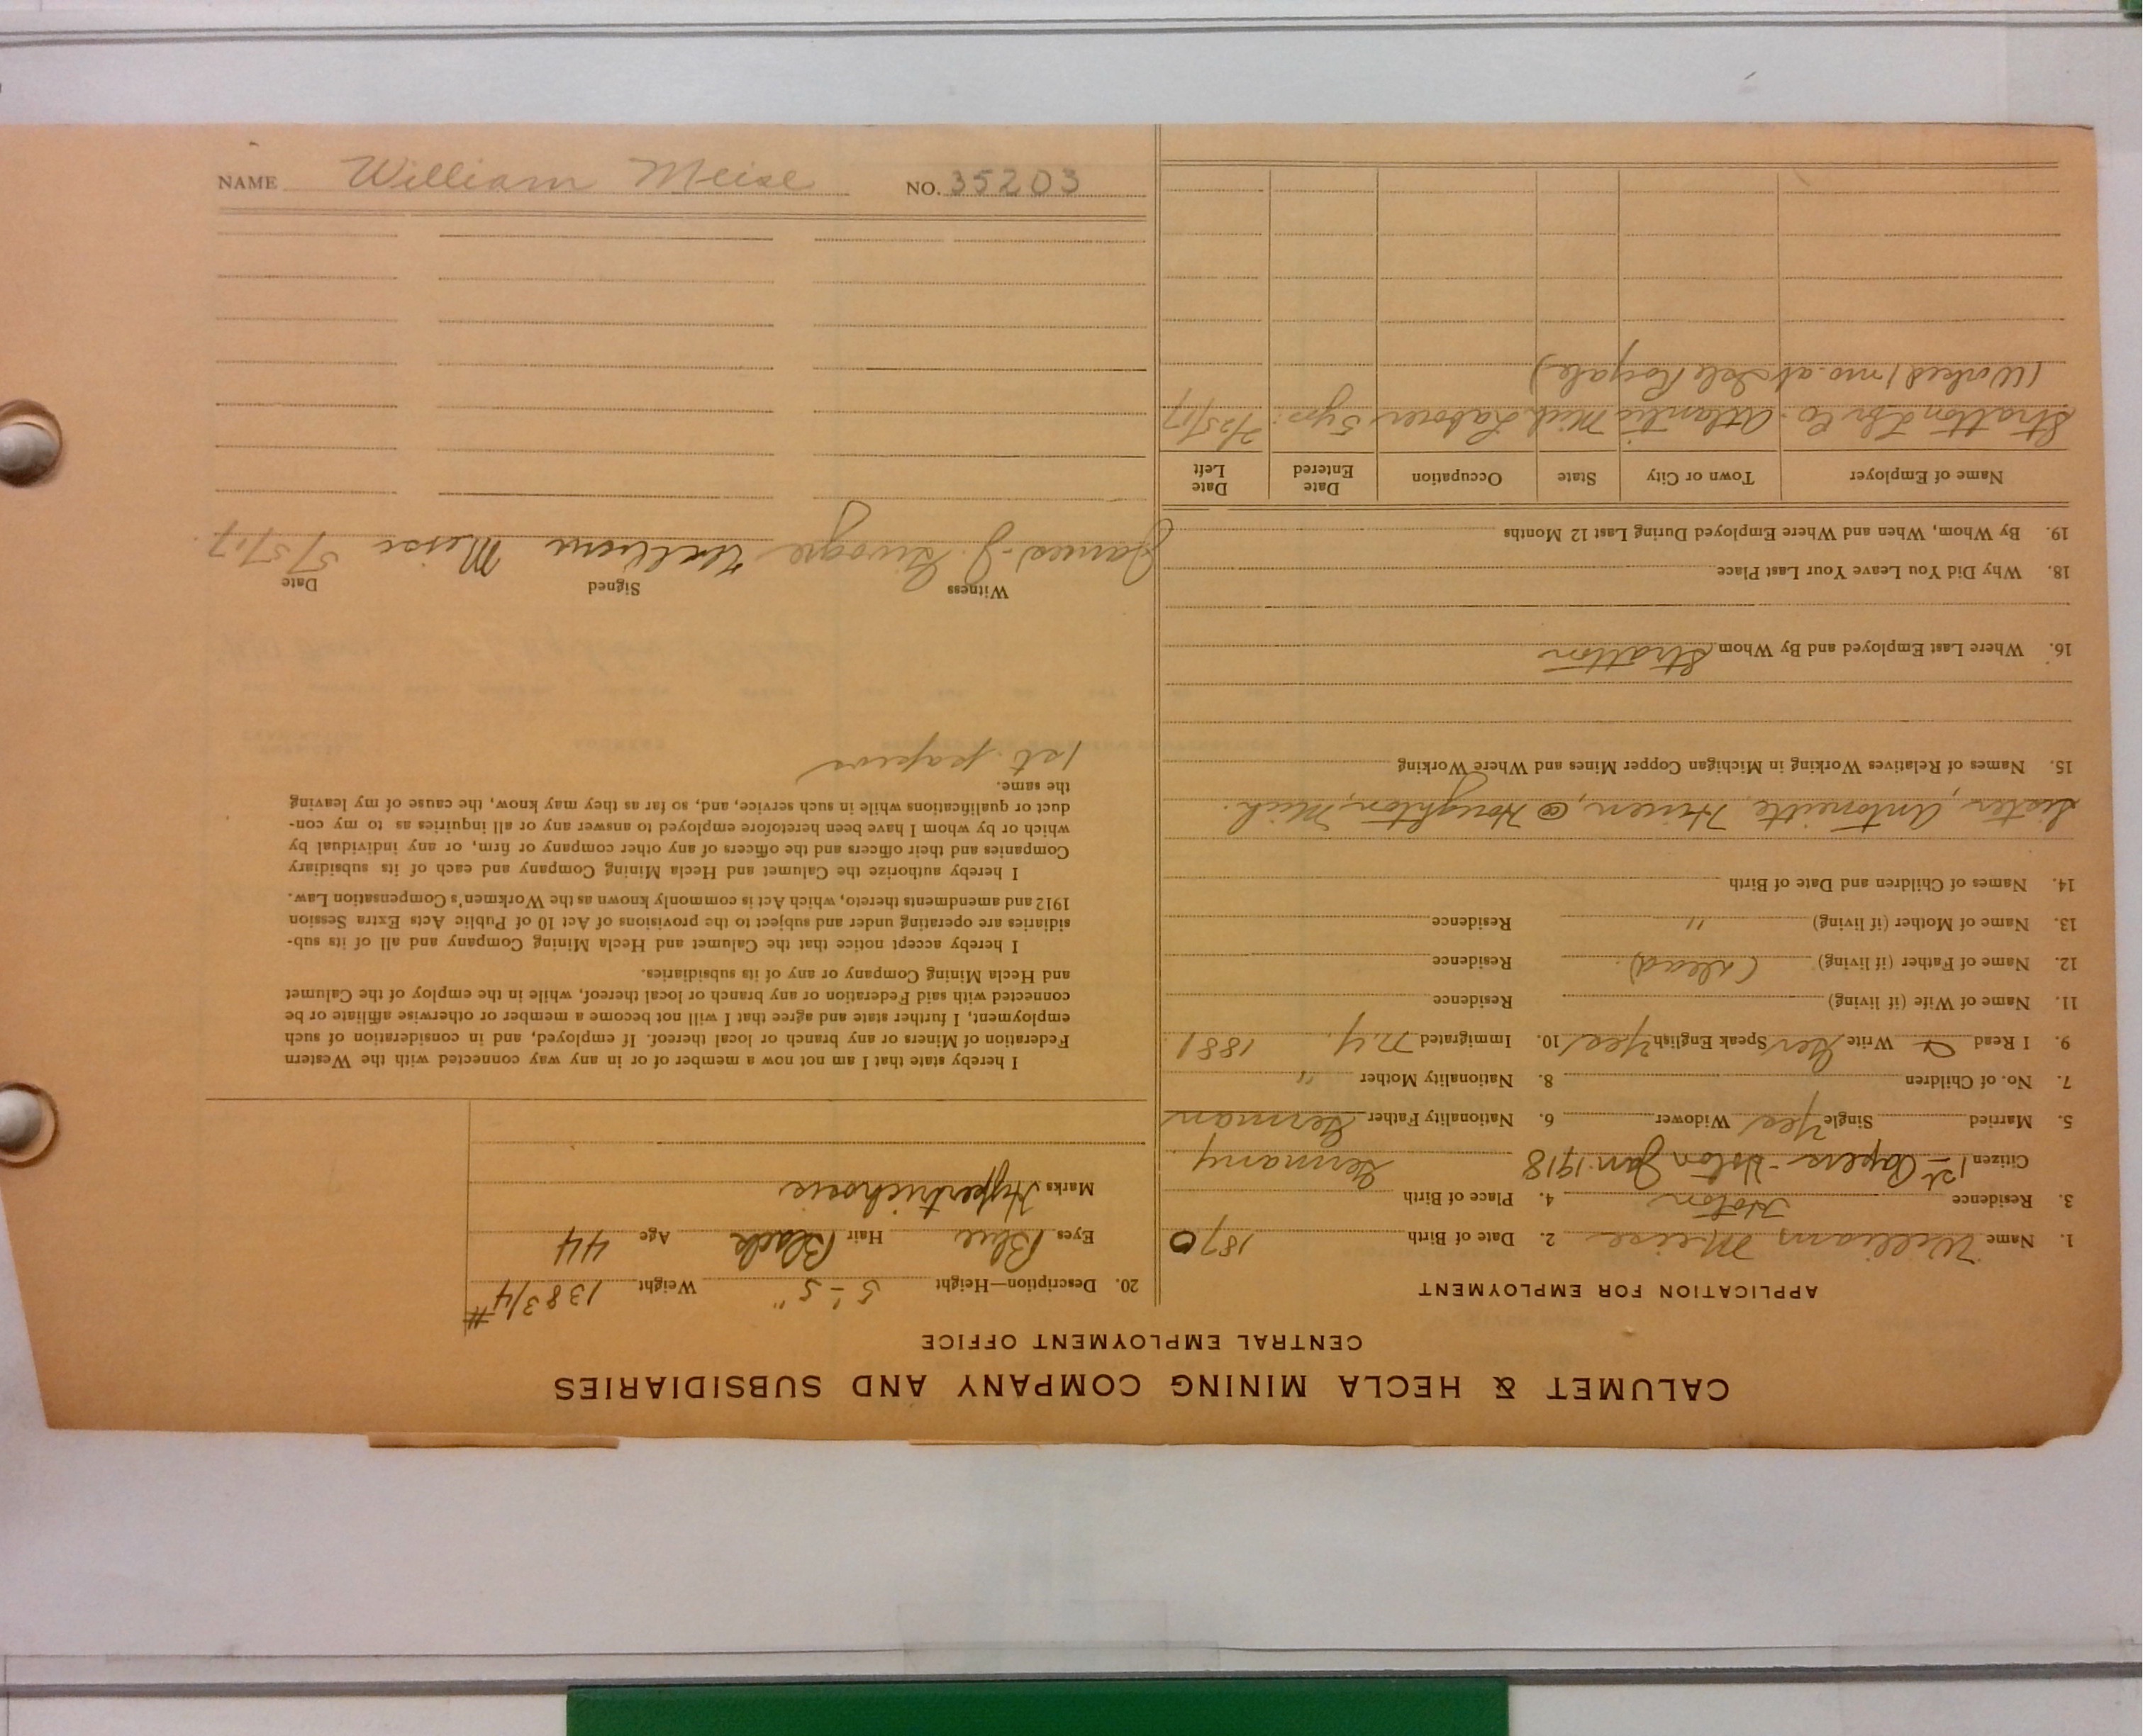 CALUMET & HECLA MINING COMPANY AND SUBSIDIARIES
CENTRAL EMPLOYMENT OFFICE
APPLICATION FOR EMPLOYMENT
1. Name William Meise 2. Date of Birth 1870
3. Residence Hoton 4. Place of Birth Germany
Citizen 1st Papers - Hoton Jan. 1918
5. Married Single Yes Widower 6. Nationality Father German
7. No. of Children 8. Nationality Mother "
9. I Read & Write Ger Speak English Yes 10. Immigrated N.Y. 1881
11. Name of Wife (if living) Residence
12. Name of Father (if living) (Dead) Residence
13. Name of Mother (if living) " Residence
14. Names of Children and Date of Birth
Sister, Antoinette, @ Houghton, Mich.
15. Names of Relatives Working in Michigan Copper Mines and Where Working
16. Where Last Employed and By Whom Stratton
18. Why Did You Leave Your Last Place
19. By Whom, When and Where Employed During Last 12 Months
Name of Employer Town or City State Occupation Date Entered Date Left
Stratton Lbr Co. Atlantic Mich Laborer 5 yrs. 2/25/17
(Worked 1 mo. at Isle Royale)
20. Description—Height 5'-5" Weight 138 3/4 #
Eyes Blue Hair Black Age 44
Marks Hypertrichosis
I hereby state that I am not now a member of or in any way connected with the Western
Federation of Miners or any branch or local thereof. If employed, and in consideration of such
employment, I further state and agree that I will not become a member or otherwise affiliate or be
connected with said Federation or any branch or local thereof, while in the employ of the Calumet
and Hecla Mining Company or any of its subsidiaries.
I hereby accept notice that the Calumet and Hecla Mining Company and all of its sub-
sidiaries are operating under and subject to the provisions of Act 10 of Public Acts Extra Session
1912 and amendments thereto, which Act is commonly known as the Workmen's Compensation Law.
I hereby authorize the Calumet and Hecla Mining Company and each of its subsidiary
Companies and their officers and the officers of any other company or firm, or any individual by
which or by whom I have been heretofore employed to answer any or all inquiries as to my con-
duct or qualifications while in such service, and, so far as they may know, the cause of my leaving
the same.
1st papers
Witness Signed Date
James J. William Meise 5/5/17.
NAME William Meise NO. 35203